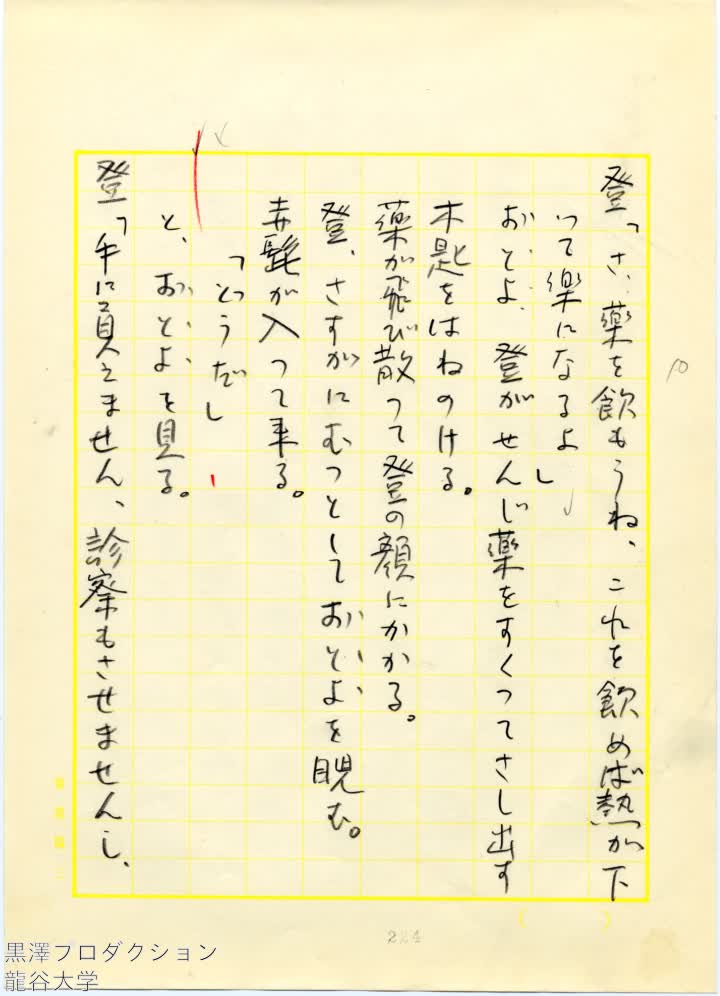 登「さ、薬を飲もうね、これを飲めば熱が下
って楽になるよ」
おとよ、登がせんじ薬をすくってさし出す
木匙をはねのける。
薬が飛び散って登の顔にかかる。
登、さすがにむっとしておとよを睨む。
赤髭が入って来る。
「どうだ」
と、おとよを見る。
登「手に負えません、診察もさせませんし、
10
224
黒澤プロダクション
龍谷大学